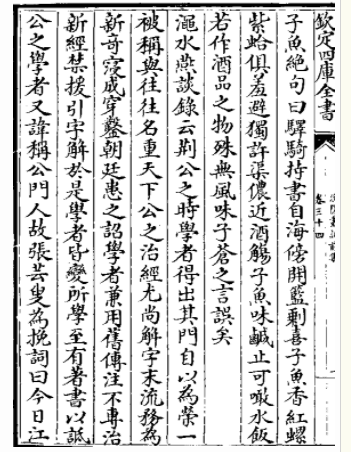 欽定四庫全書
卷三十四
子魚絶句曰驛騎持書自海傍開籃剰喜子魚香紅螺
紫蛤俱羞避獨許渠儂近酒觴子魚味鹹止可噉水飯
若作酒品之物殊無風味子蒼之言誤矣
澠水燕談錄云荆公之時學者得出其門自以為榮一
被稱與往往名重天下公之治經尤尚解字末流務為
新竒寖成穿鑿朝廷患之詔學者兼用舊傳注不專治
新經禁援引字解於是學者皆變所學至有著書以詆
公之學者又諱稱公門人故張芸叟為挽詞曰今日江